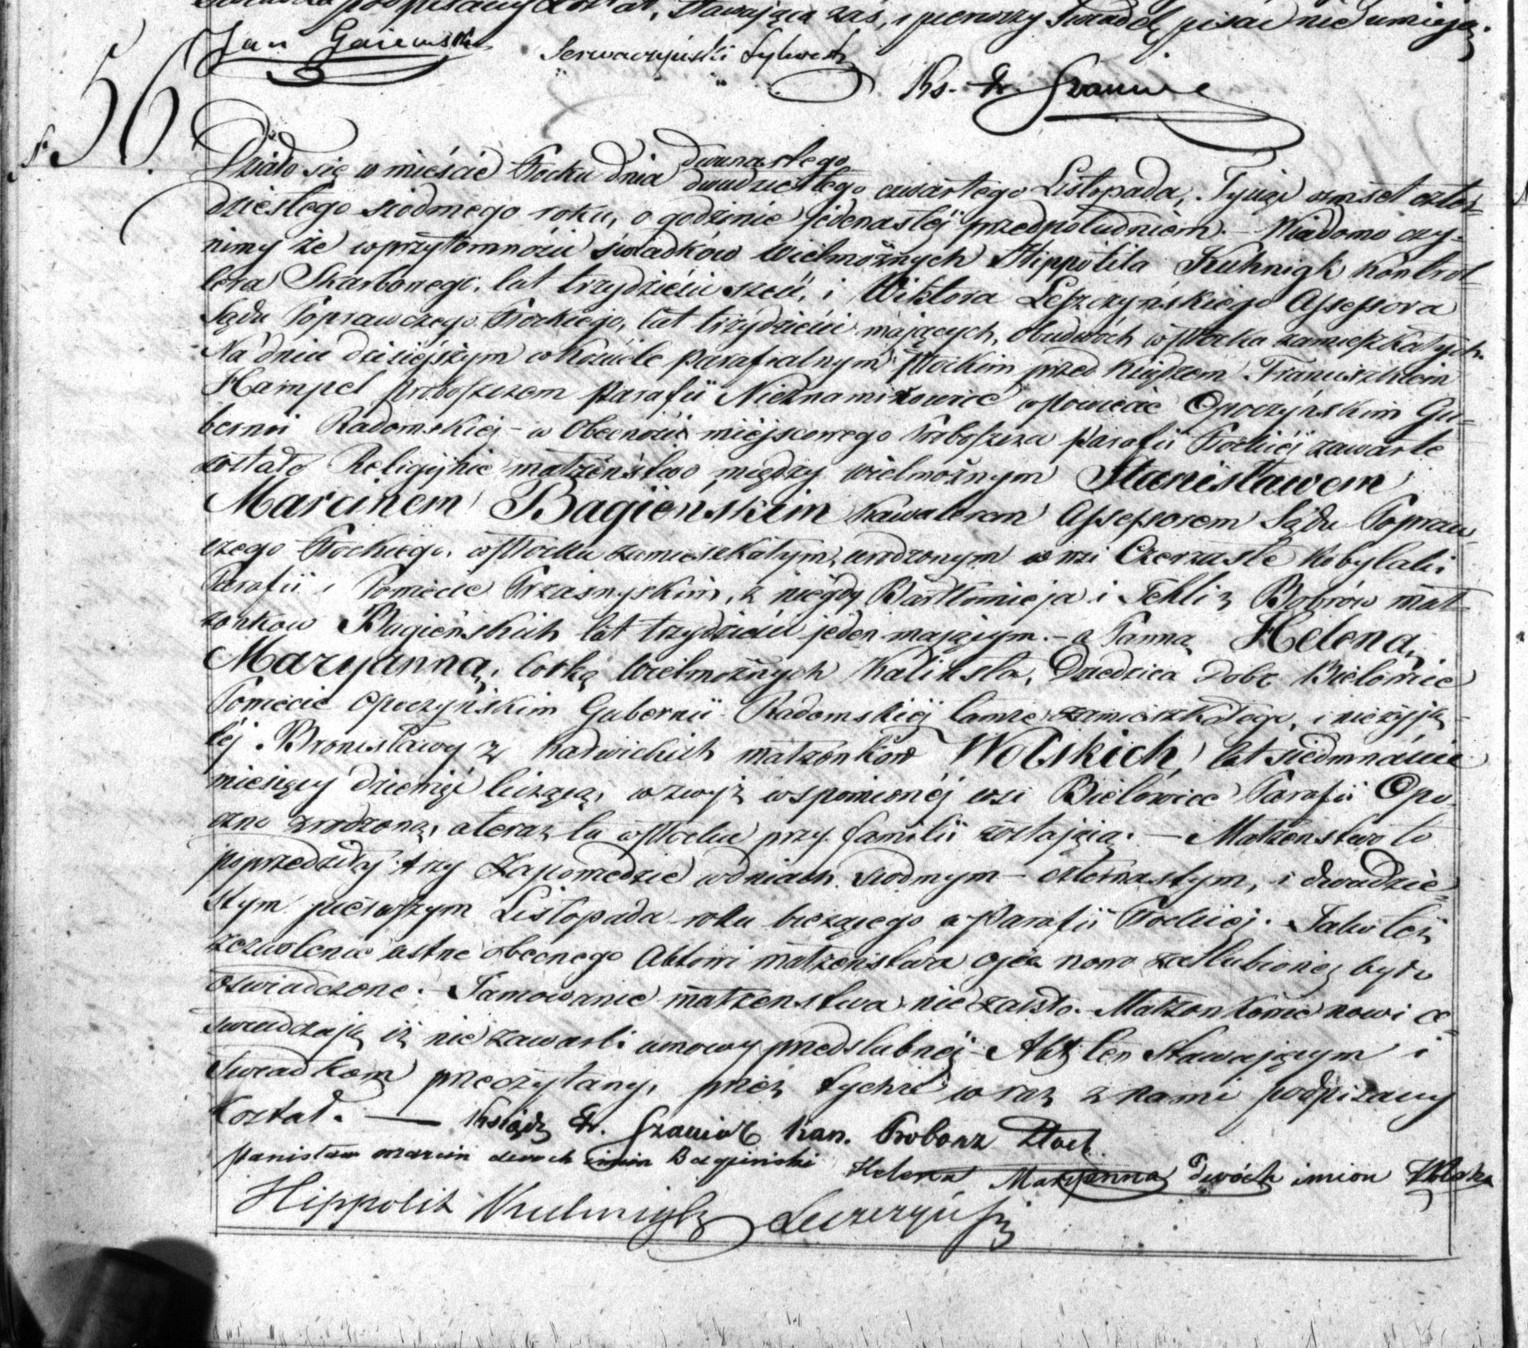 podpisany został, Stawająca zaś, i pierwszy Świadek pisać nie umieją.
Jan Gajewski Serwaczyński Sylwester
Ks. Fr.
56.
Działo się w mieście Płocku dnia dwunastego
dwudziestego czwartego Listopada, Tysiąc ośmset czter-
dziestego siódmego roku, o godzinie jedenastej przedpołudniem. – Wiadomo czy-
nimy że w przytomności świadków Wielmożnych Hippolita Kuhnigk Kontrol-
lera Skarbowego, lat trzydzieści sześć, i Wiktora Leszczyńskiego Assessora
Sądu Poprawczego Płockiego, lat trzydzieści mających, obudwóch w Płocku zamieszkałych.
Na dniu dzisiejszym w Kościele parafialnym Płockim przed Księdzem Franciszkiem
Hampel proboszczem parafii Nieznamirowice w Powiecie Opoczyńskim Gu-
bernii Radomskiej – w Obecności miejscowego Proboszcza parafii Płockiej zawarte
zostało Religijne małżeństwo między wielmożnym Stanisławem
Marcinem Bagieńskim kawalerem Assessorem Sądu Popraw-
czego Płockiego, w Płocku zamieszkałym, urodzonym w wsi Czerzaste Kobylaki
Parafii i Powiecie Przasnyskim, z niegdy Bartłomieja i Tekli z Bobrów mał-
żonków Bagieńskich lat trzydzieści jeden mającym. – a Panną Heleną
Maryanną, córką Wielmożnych Kaliksta, Dziedzica Dóbr Bielowic
Powiecie Opoczyńskim Gubernii Radomskiej tamże zamieszkałego, i nieżyją-
cej Bronisławy z małżonków Wolskich, lat siedmnaście
miesięcy dziewięć liczącą, w zwyż wspomnionej wsi Bielowice Parafii Opo-
czno zrodzoną, a teraz tu w Płocku przy familii zostającą. – Małżeństwo to
poprzedziły trzy Zapowiedzie w dniach siódmym – czternastym, i dwudzie-
stym pierwszym Listopada roku bieżącego w Parafii Płockiej. Jako też
zezwolenie ustne obecnego Aktowi małżeństwa ojca nowo zaślubionej było
oświadczone. – Tamowanie małżeństwa nie zaszło. Małżonkowie nowi o-
świadczają iż nie zawarli umowy przedślubnej – Akt ten Stawającym i
Świadkom przeczytany, przez tychże wraz z nami podpisany
został. — Ksiądz Fr. Kan. Proboszcz Płock.
Stanisław Marcin dwóch imion Bagieński Helena Maryanna dwóch imion Wolska
Hippolit Kuhnigk Leszczyński